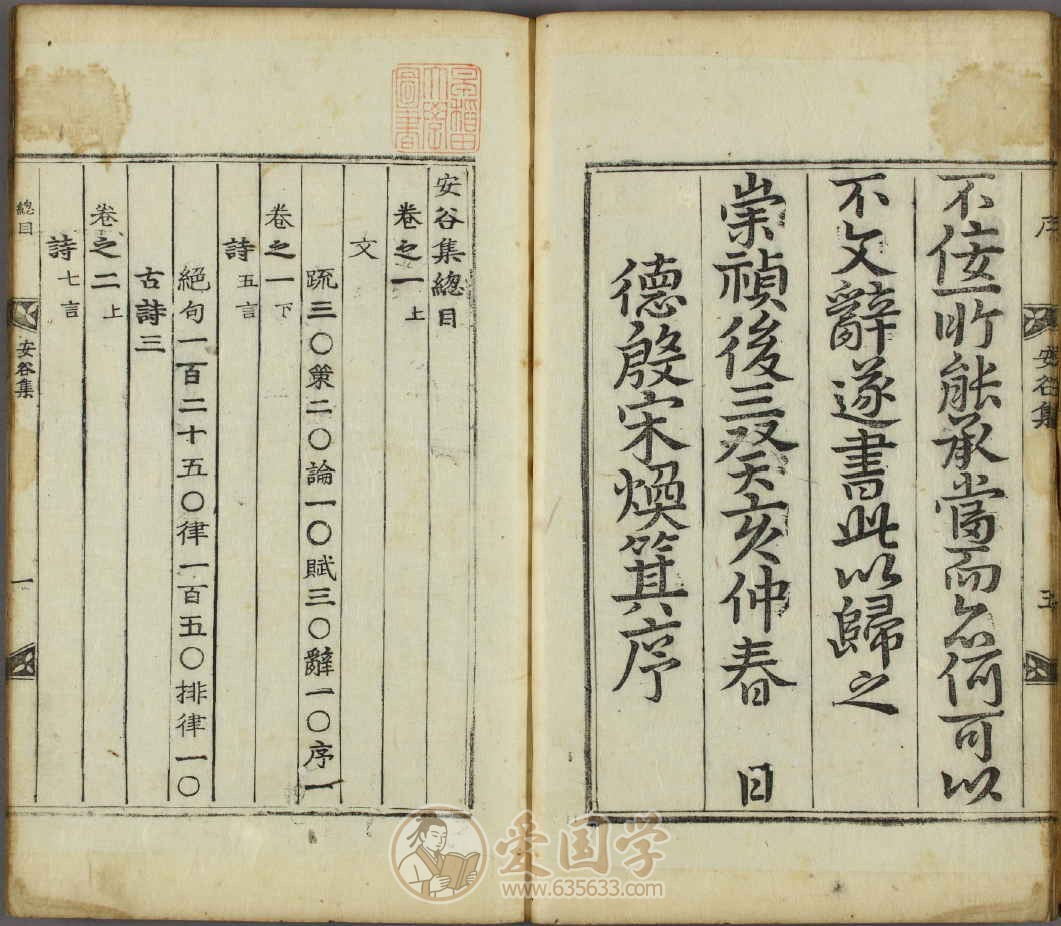 序 安谷集 五
不佞所能承當而亦何可以
不文辭遂書此以歸之
崇禎後三癸亥仲春 日
德殷宋煥箕序
早稻田
大學
圖書
安谷集總目
卷之一上
文
疏三〇策二〇論一〇賦三〇辭一〇序一
卷之一下
詩五言
絕句一百二十五〇律一百五〇排律一〇
古詩三
卷之二上
詩七言
總目 安谷集 一
爱国学
www.635633.com